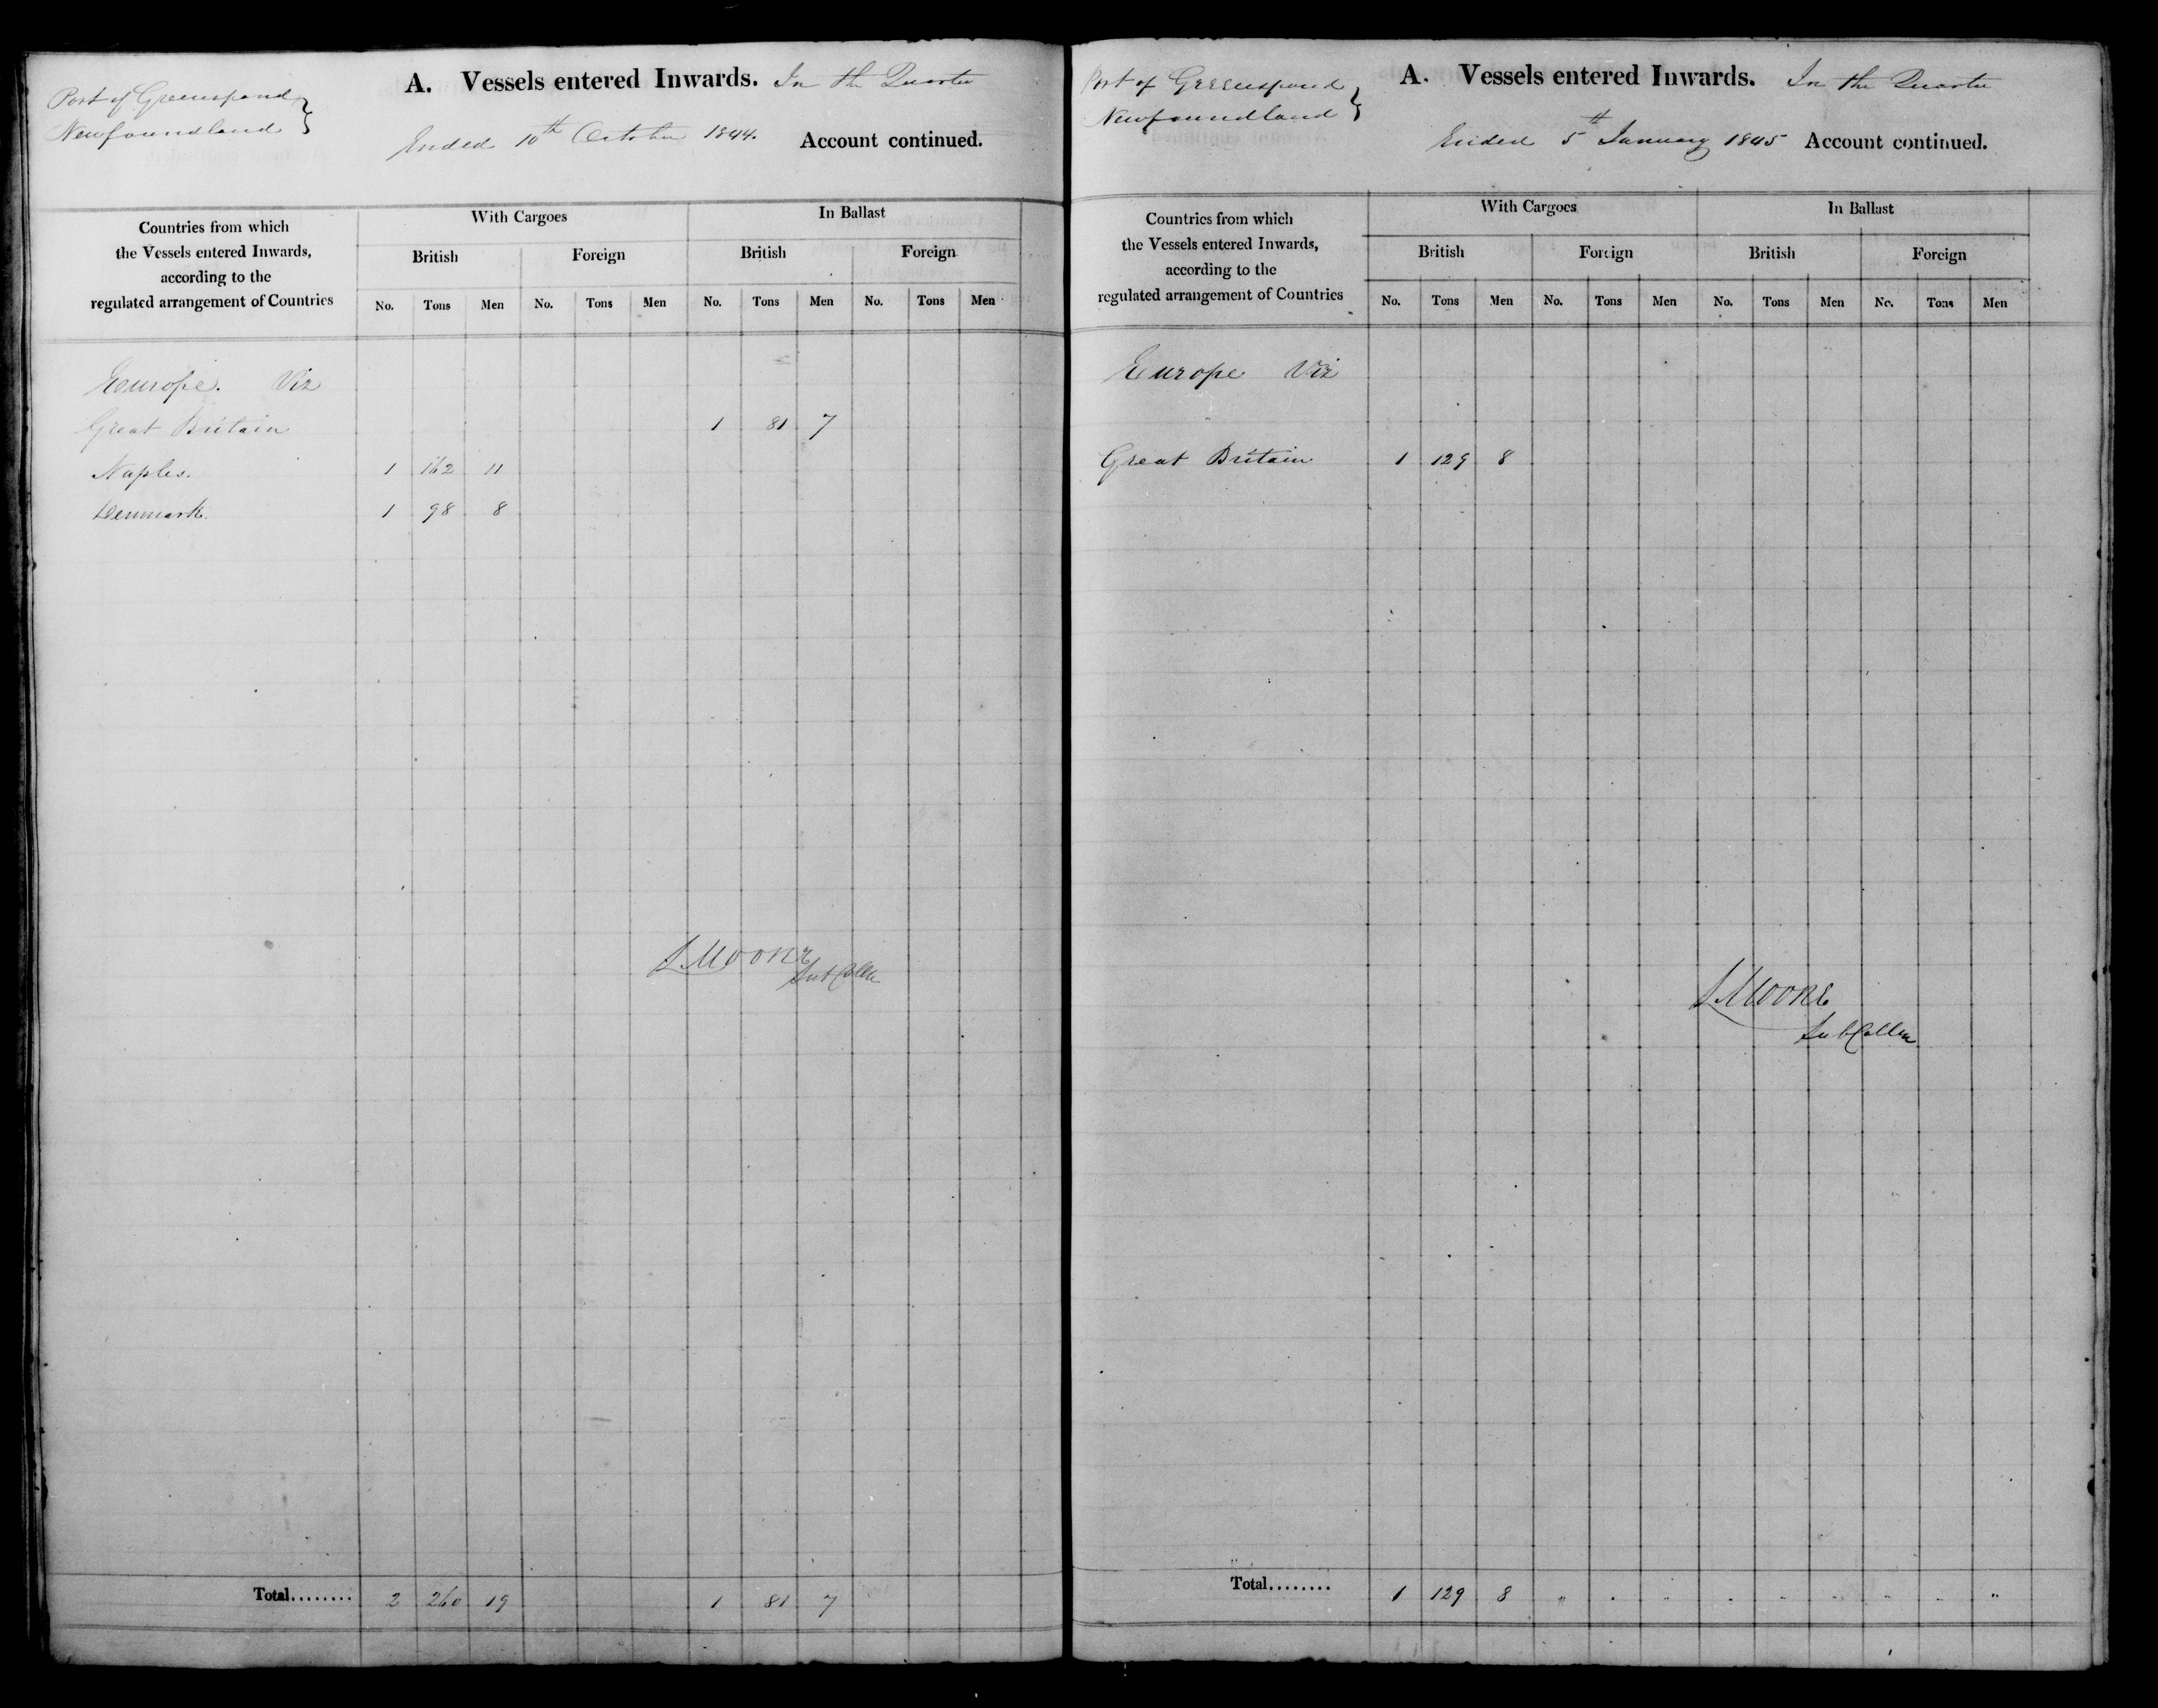 Port of Greenspond
Newfoundland
A. Vessels entered Inwards. In the Quarter
Ended 10th October 1844. Account continued.
Countries from which
the Vessels entered Inwards,
according to the
regulated arrangement of Countries
With Cargoes In Ballast
British Foreign British Foreign
No. Tons Men No. Tons Men No. Tons Men No. Tons Men
Europe. Viz
Great Britain 1 81 7
Naples. 1 162 11
Denmark. 1 98 8
Moore
Sub Collr
Total........ 2 260 19 1 81 7
Port of Greenspond
Newfoundland
A. Vessels entered Inwards. In the Quarter
Ended 5th January 1845 Account continued.
Countries from which
the Vessels entered Inwards,
according to the
regulated arrangement of Countries
With Cargoes In Ballast
British Foreign British Foreign
No. Tons Men No. Tons Men No. Tons Men No. Tons Men
Europe Viz
Great Britain 1 129 8
Moore
Sub Collr
Total........ 1 129 8 " " " " " " " " "